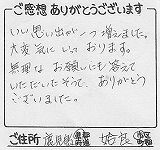 ご感想ありがとうございます
いい思い出が一つ増えました。
大変気に入っております。
無理なお願いにも答えて
いただいたそうで、ありがとう
ございました。
ご住所 鹿児島 都道府県 姶良 市区町村